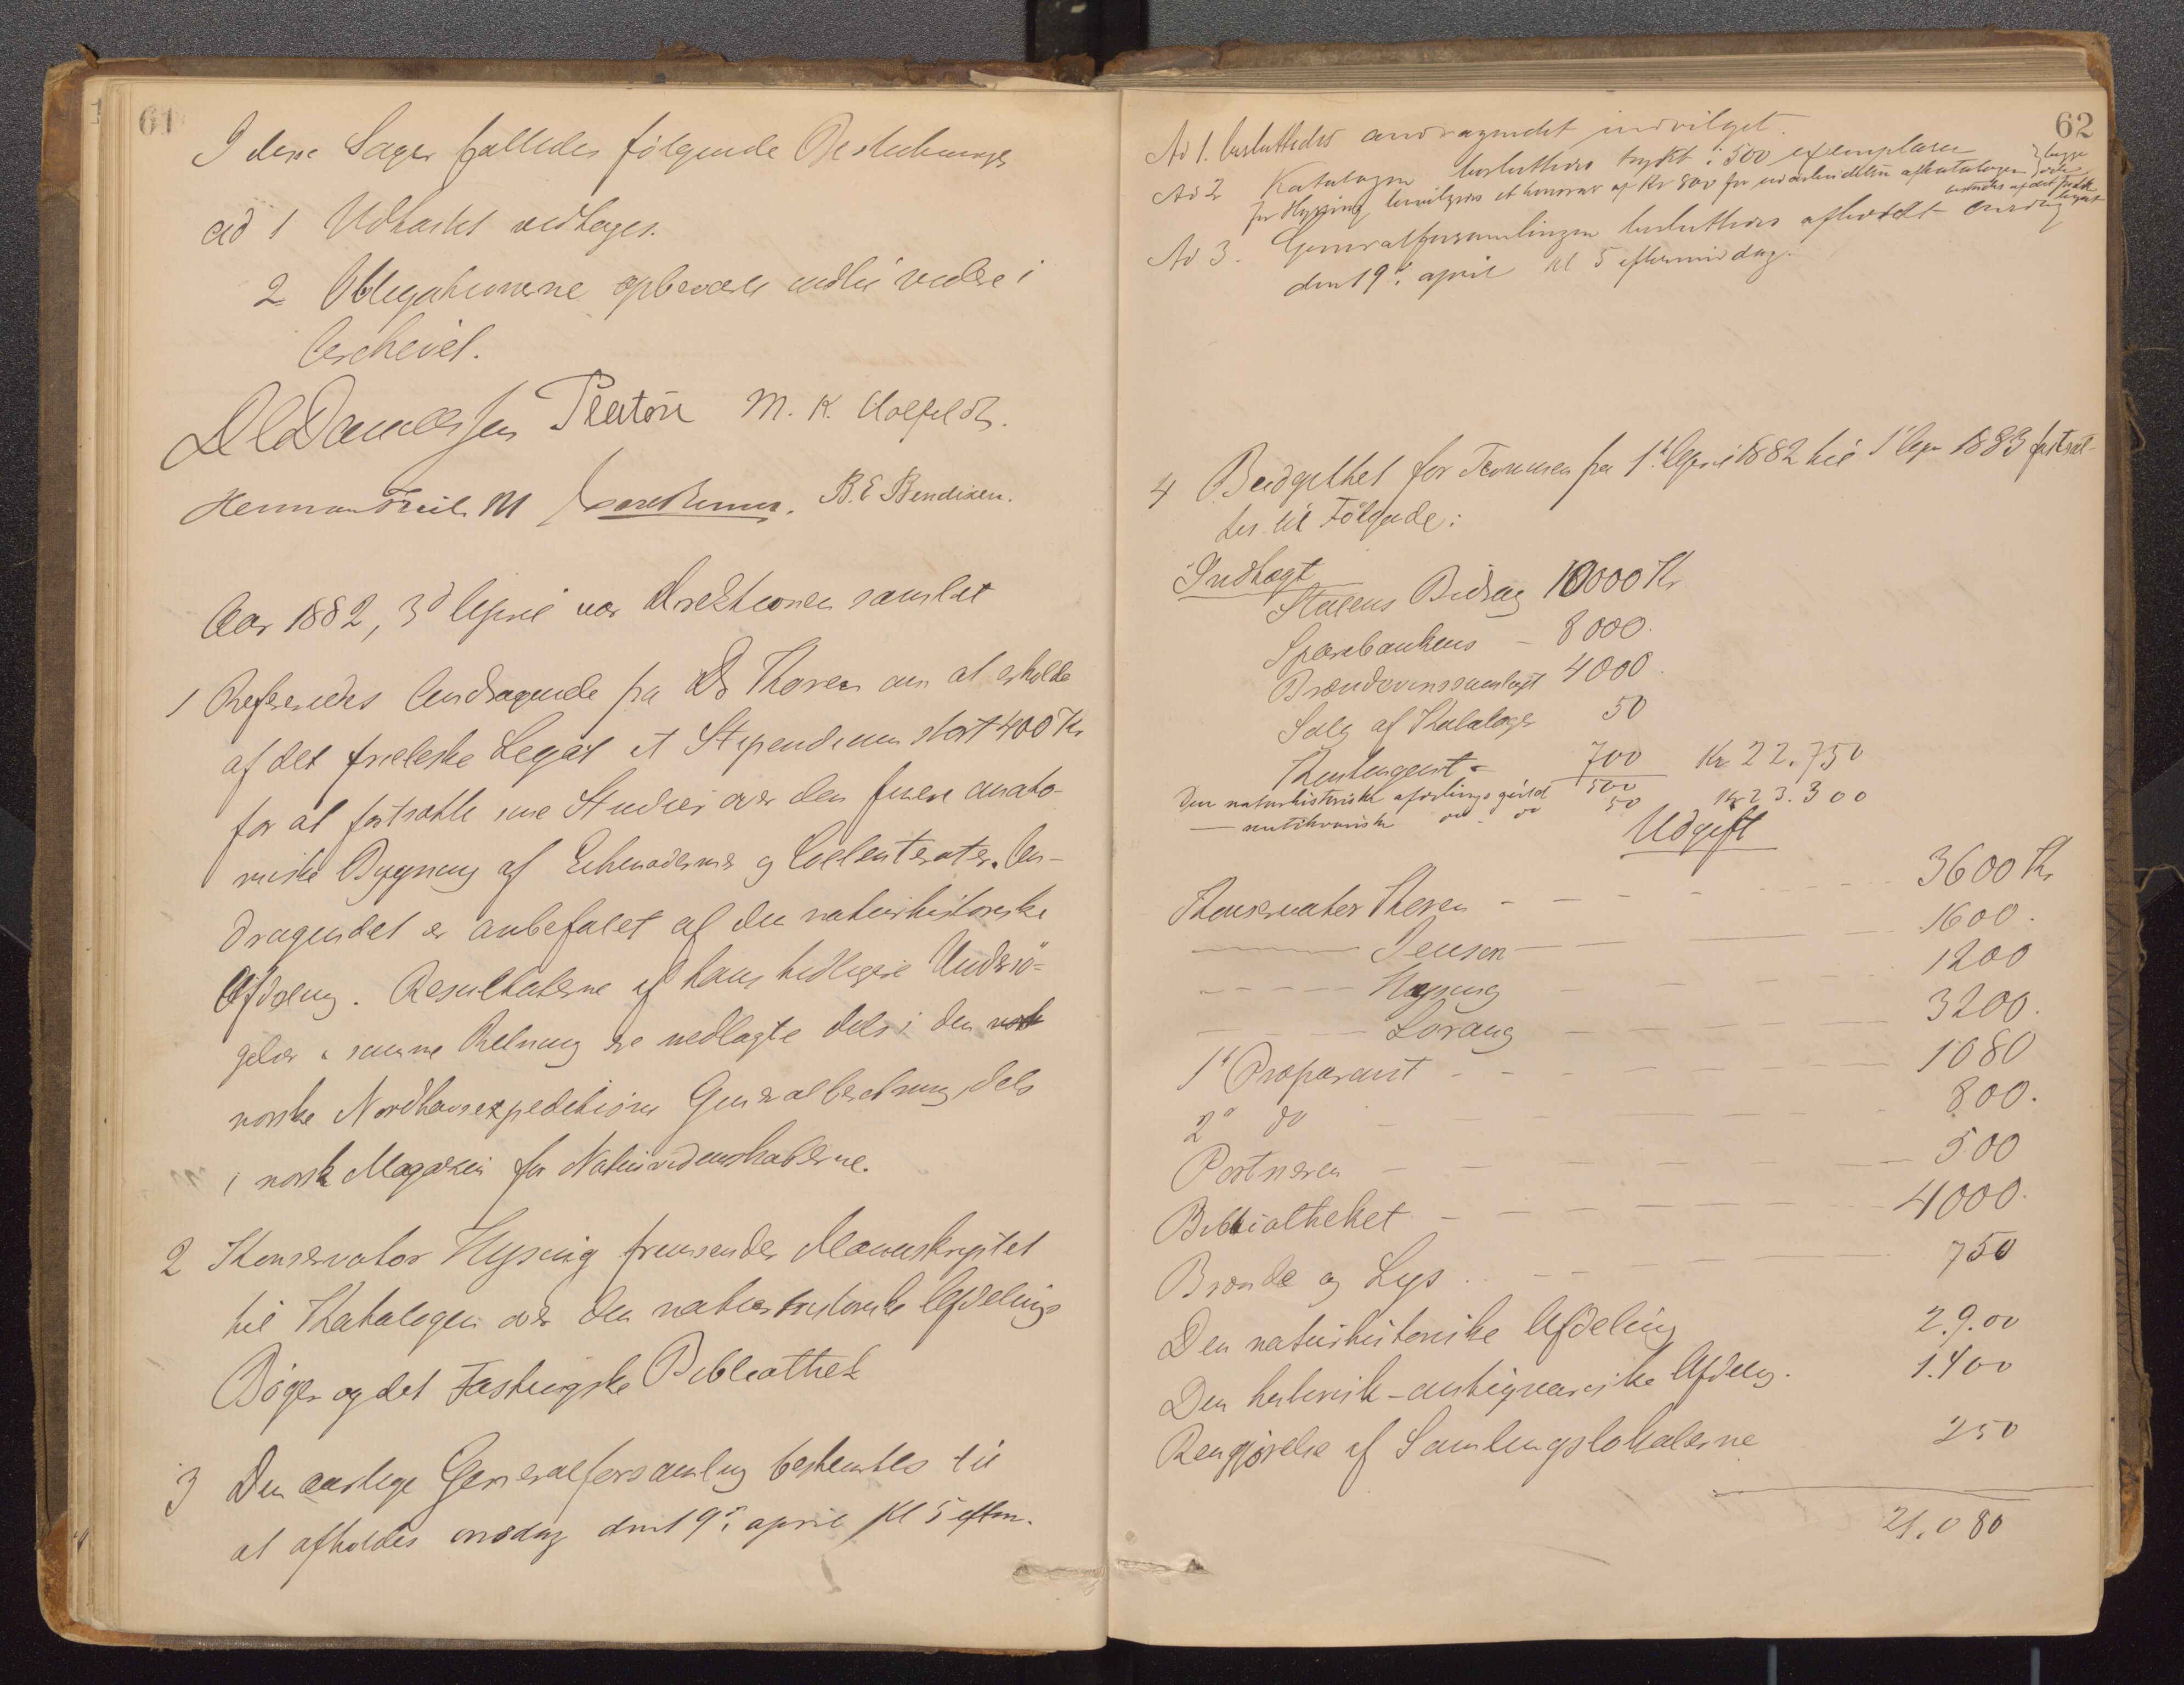 61
I disse Sager fattedes følgende Beslutninger
ad 1 Udkastet vedtages.
2 Obligationerne opbevares indtil videre i
Archivet.
D C Danielssen Platou M. K. Holfeldt.
Herman Friele B. E. Bendixen.
Aar 1882, 3d April var Direktionen samlet
1 Refereredes Andragende fra Dr Koren om at erholde
af det frieleske Legat et Stipendium stort 400 Kr
for at fortsætte sine Studier over den finere anato-
miske Bygning af Echinodermer og Coelenterater. An-
dragendet er anbefalet af den naturhistoriske
Afdeling. Resultaterne af hans tidligere Undersö-
gelser i samme Retning ere nedlagte dels i den
norske Nordhavsexpeditions Generalberetning, dels
i norsk Magazin for Naturvidenskaberne.
2 Konservator Hysing fremsender Manuskriptet
til Kathalogen over den naturhistoriske Afdelings
Böger og det Fastingske Bibliothek
3 Den aarlige Generalforsamling bestemtes til
at afholdes onsdag den 19de april kl 5 eftm.
62
Ad 1. besluttedes andragendet indvilget.
Ad 2 Katalogen besluttedes trykt i 500 exemplarer
for Hysing bevilgedes et honorar af Kr 800 for udarbeidelsen af katalogen
Ad 3. Generalforsamlingen besluttedes afholdt onsdag
den 19de april kl 5 eftermiddag.
4 Budgettet for Terminen fra 1ste April 1882 til 1 Apr 1883 fastsat-
tes til Følgende:
Indtægt
Statens Bidrag 10000 Kr
Sparebankens – 8000.
Brændevinssamlaget 4000.
Salg af Kataloger 50
Kontingent – 700 Kr 22.750
Den naturhistoriske afdelings gjæld 500 Kr 23.300
— antikvariske do. do 50
Udgift
Konservator Koren – – – 3600 Kr
— Jensen — 1600.
— Hysing – 1200
— Lorang — 3200.
1ste Præparant – – 1080
2den do – 800.
Portneren – – 500
Bibliotheket – – 4000.
Brænde og Lys – – 750
Den naturhistoriske Afdeling 2.900
Den historisk-antiqvariske Afdelg. 1.400
Rengjörelse af Samlingslokalerne 250
21.080